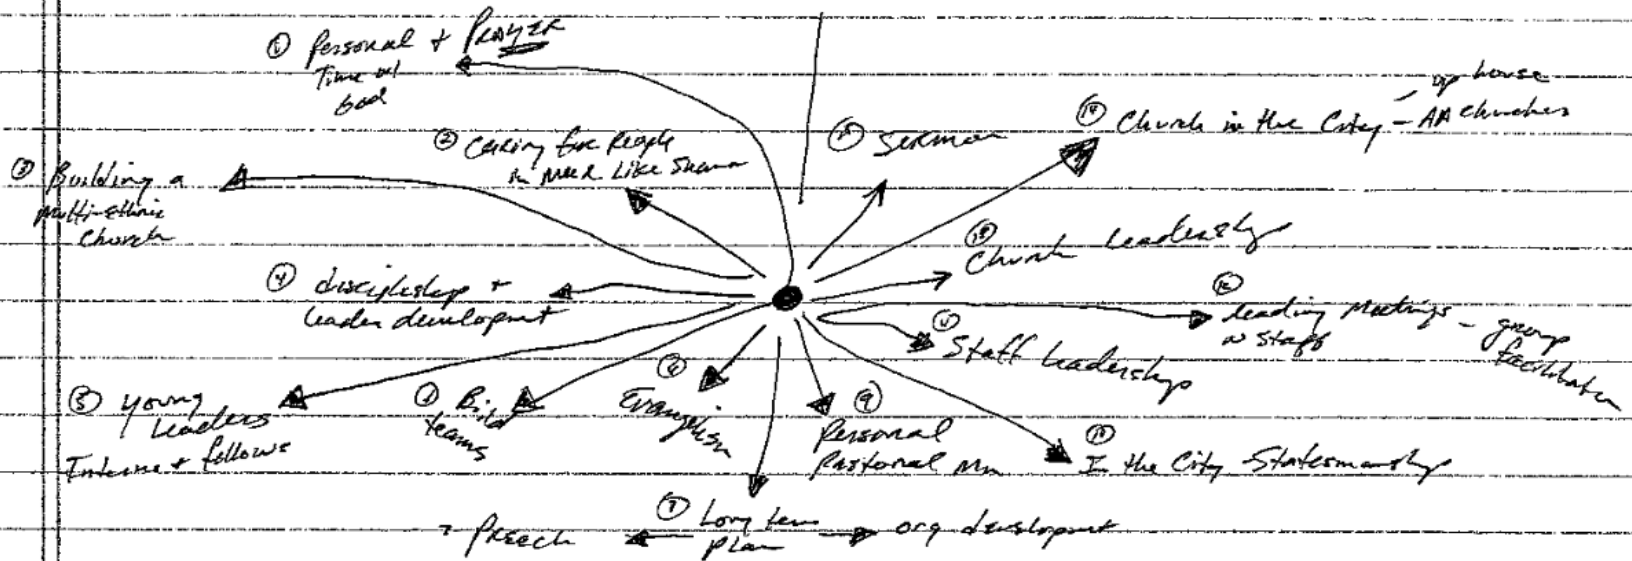 ① Personal + PRAYER
Time w/
God
② Caring for People
in need like Shawn
③ Building a
Multi-Ethnic
Church
④ discipleship +
leader development
⑤ Young
Leaders
Interns + fellows
Build
teams
Evangelism
⑦ Long term
plan
Preach
org development
⑨
Personal
Pastoral Min
⑩
In the City Statesmanship
⑪
Staff Leadership
⑫
leading Meetings - group
w staff facilitation
⑬
Church leadership
⑭ Church in the City - AA churches
house
⑮ Sermon